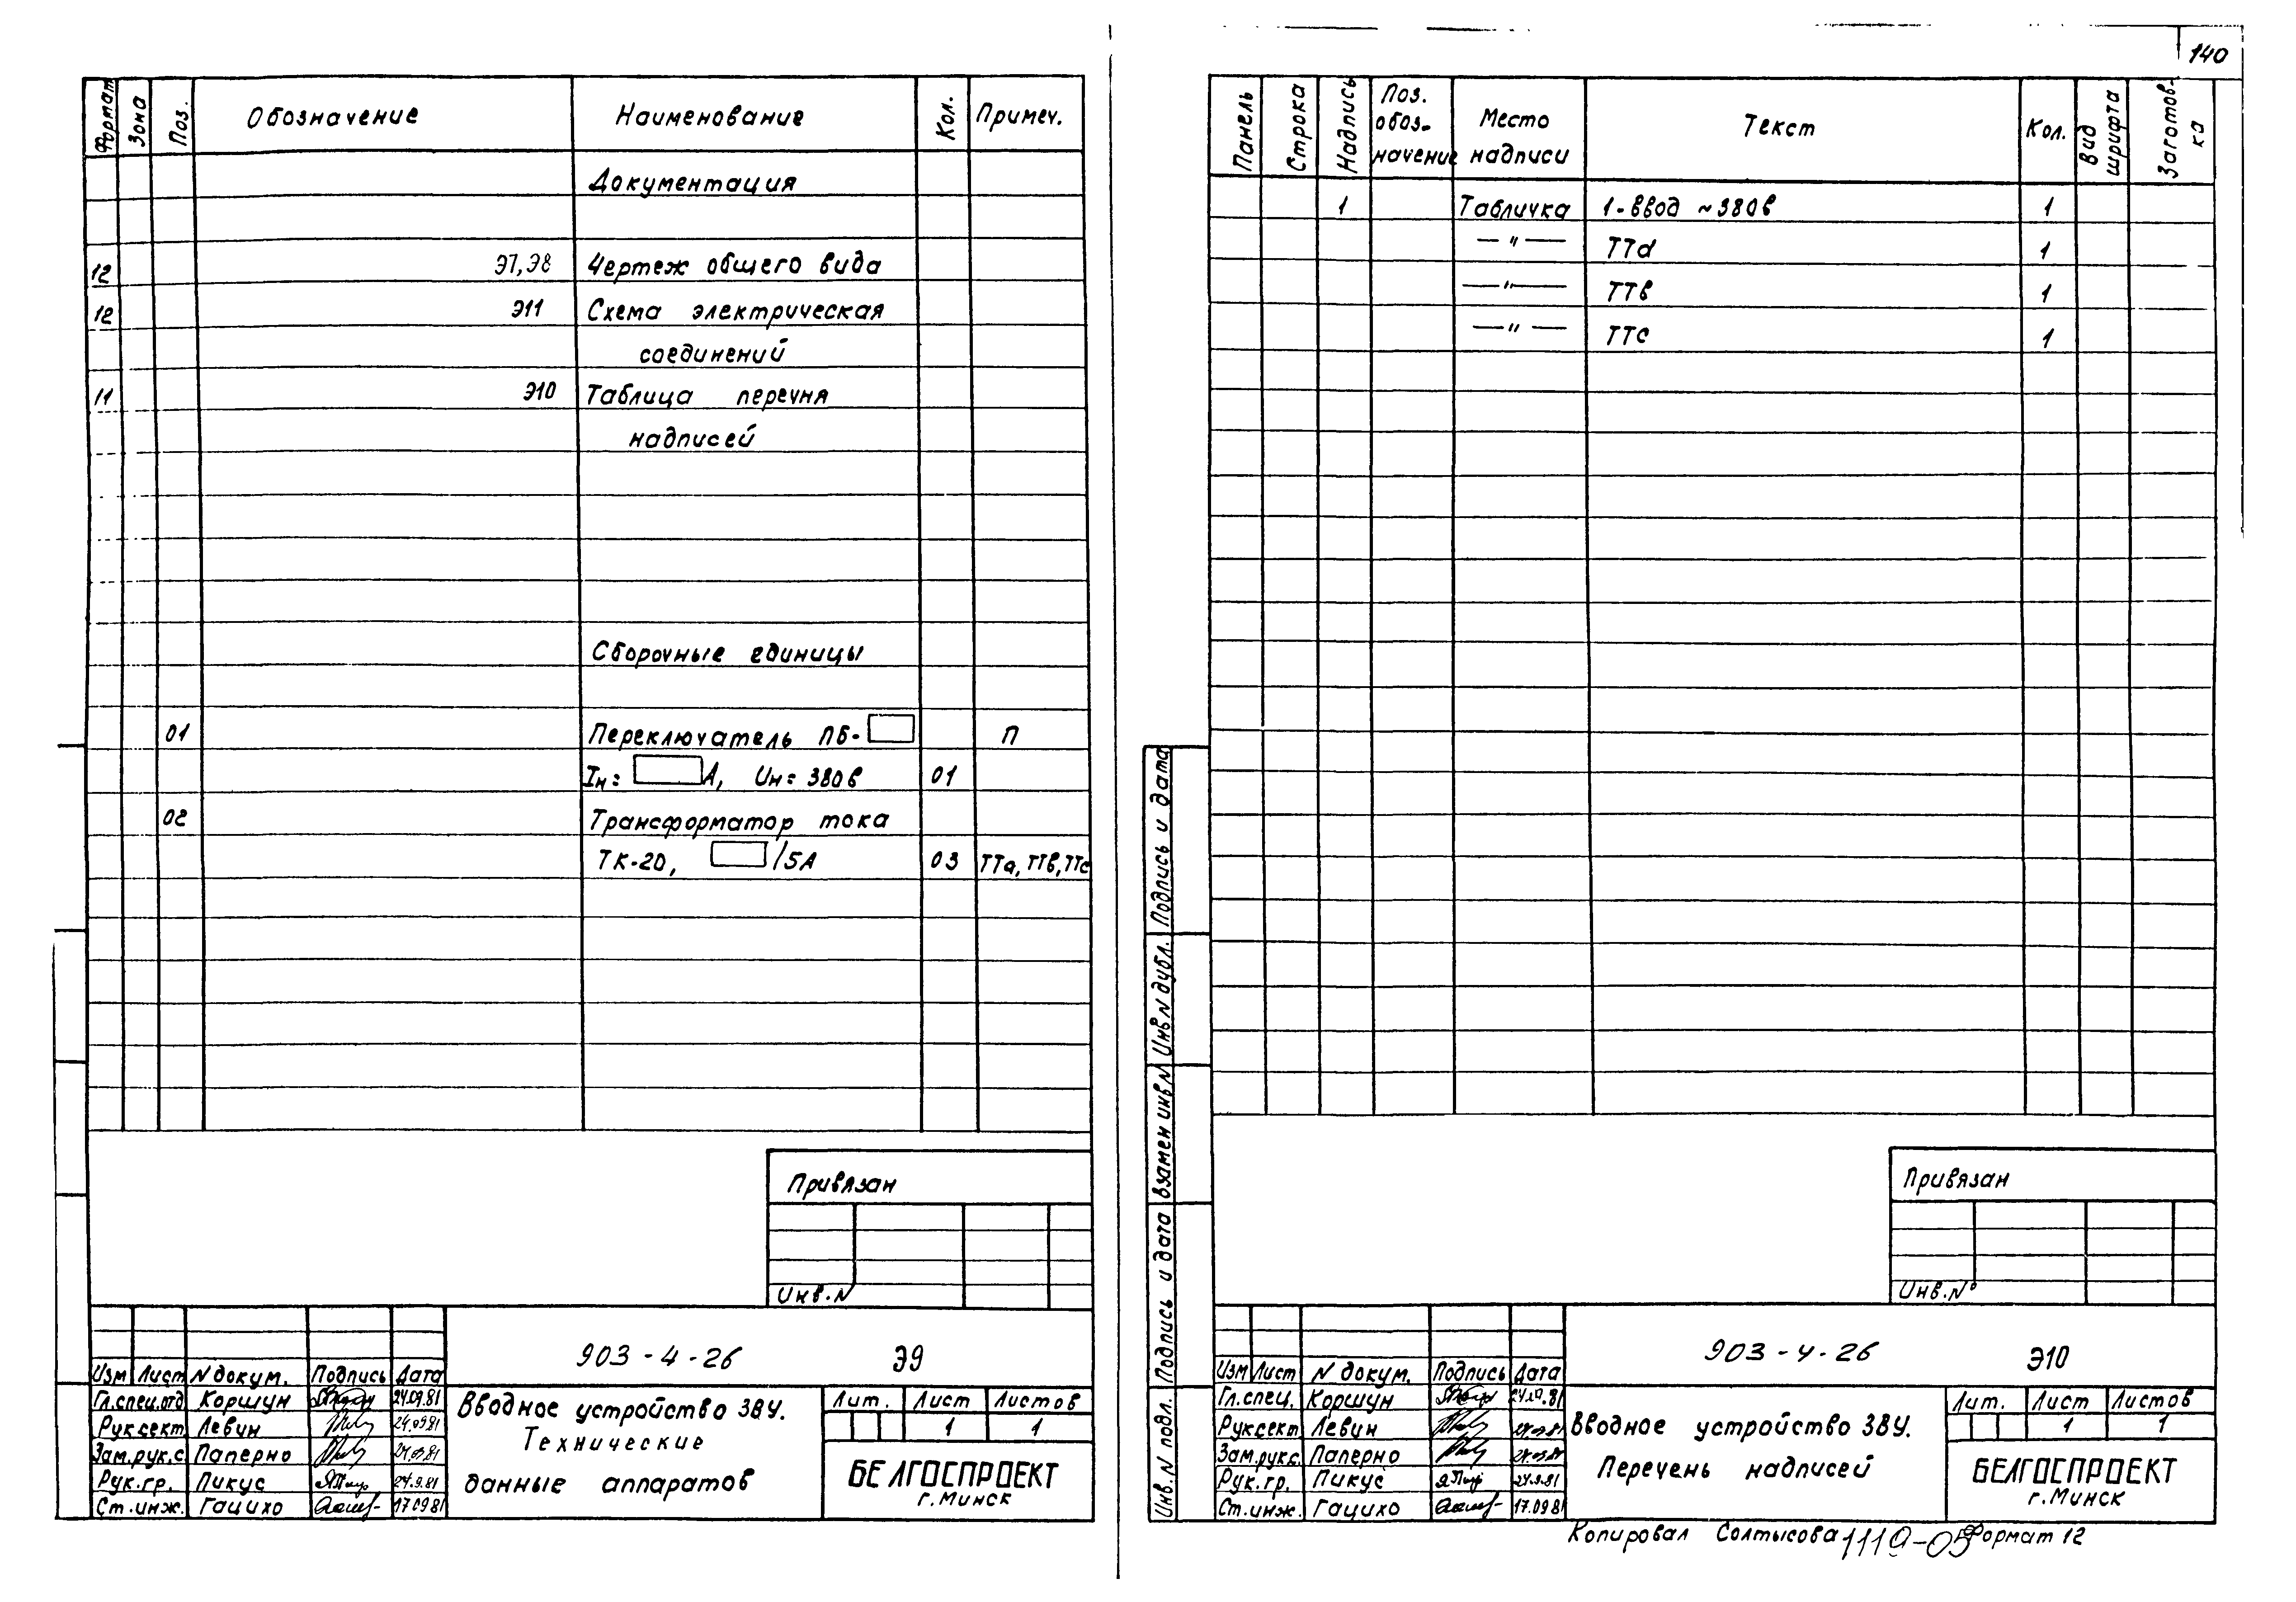 140
Формат Зона Поз. Обозначение Наименование Кол. Примеч.
Документация
12 Э7,Э8 Чертеж общего вида
12 Э11 Схема электрическая
соединений
11 Э10 Таблица перечня
надписей
Сборочные единицы
01 Переключатель ПБ- П
Iн= А, Uн= 380в 01
02 Трансформатор тока
ТК-20, /5А 03 ТТа, ТТв, ТТс
Привязан
Инв.N
903-4-26 Э9
Изм Лист N докум. Подпись Дата
Гл.спец.отд Коршун 24.09.81
Рук сект Левин 24.09.81
Зам.рук.с Паперно 24.09.81
Рук.гр. Пикус 24.9.81
Ст.инж. Гацихо 17.09.81
Вводное устройство 3ВУ.
Технические
данные аппаратов
Лит. Лист Листов
1 1
БЕЛГОСПРОЕКТ
г.Минск
Панель Строка Надпись Поз. обоз-начение Место надписи Текст Кол. Вид шрифта Заготов-ка
1 Табличка 1-ввод ~380в 1
— " — ТТа 1
— " — ТТв 1
— " — ТТс 1
Подпись и дата
Инв N дубл.
Взамен инв N
Подпись и дата
Инв. N подл.
Привязан
Инв.N°
903-4-26 Э10
Изм Лист N докум. Подпись Дата
Гл.спец. Коршун 24.09.81
Рук сект Левин 24.09.81
Зам.рук.с. Паперно 24.09.81
Рук.гр. Пикус 24.9.81
Ст.инж. Гацихо 17.09.81
Вводное устройство 3ВУ.
Перечень надписей
Лит. Лист Листов
1 1
БЕЛГОСПРОЕКТ
г.Минск
Копировал Солтысова Формат 12